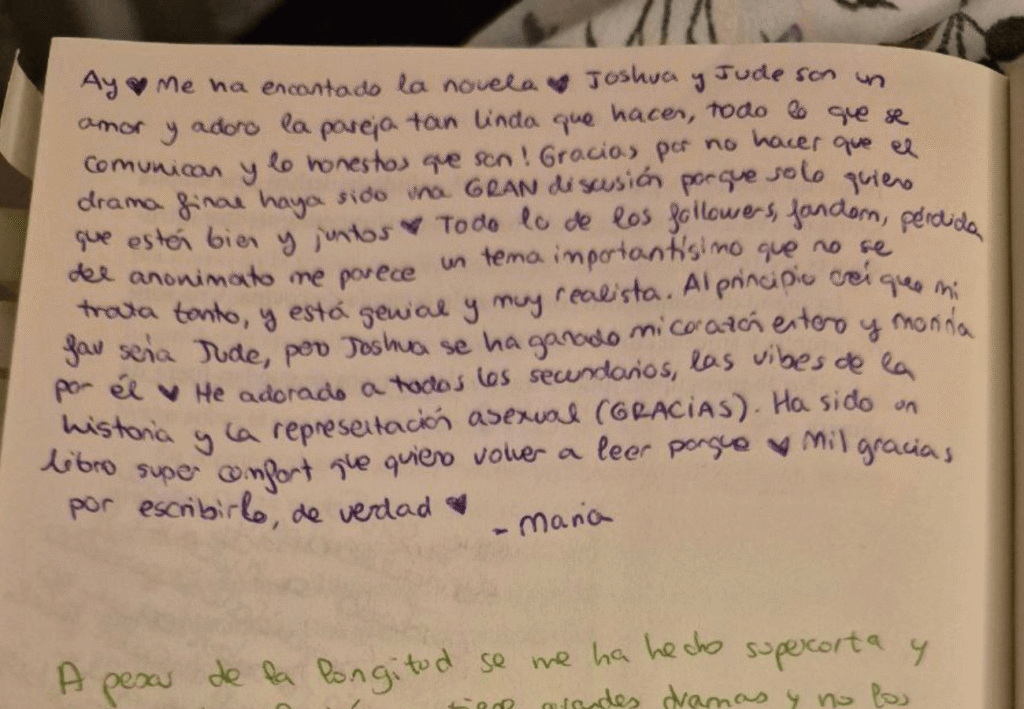 Ay ♥ Me ha encantado la novela ♥ Joshua y Jude son un
amor y adoro la pareja tan linda que hacen, todo lo que se
comunican y lo honestos que son! Gracias por no hacer que el
drama final haya sido una GRAN discusión porque solo quiero
que estén bien y juntos ♥ Todo lo de los followers, fandom, pérdida
del anonimato me parece un tema importantísimo que no se
trata tanto, y está genial y muy realista. Al principio creí que mi
fav sería Jude, pero Joshua se ha ganado mi corazón entero y moriría
por él ♥ He adorado a todos los secundarios, las vibes de la
historia y la representación asexual (GRACIAS). Ha sido un
libro super comfort que quiero volver a leer porque ♥ Mil gracias
por escribirlo, de verdad ♥ - Maria
A pesar de la longitud se me ha hecho supercorta y
tiene grandes dramas y no los